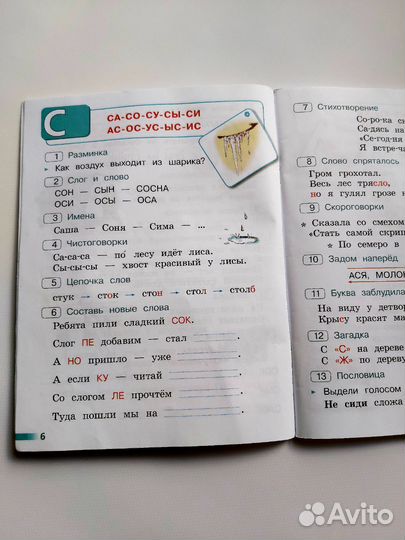 С
СА-СО-СУ-СЫ-СИ
АС-ОС-УС-ЫС-ИС
1 Разминка
Как воздух выходит из шарика?
2 Слог и слово
СОН — СЫН — СОСНА
ОСИ — ОСЫ — ОСА
3 Имена
Саша — Соня — Сима — ...
4 Чистоговорки
Са-са-са — по лесу идёт лиса.
Сы-сы-сы — хвост красивый у лисы.
5 Цепочка слов
стук — сток — стон — стол — столб
6 Составь новые слова
Ребята пили сладкий СОК.
Слог ПЕ добавим — стал
А НО пришло — уже
А если КУ — читай
Со слогом ЛЕ прочтём
Туда пошли мы на
6
7 Стихотворение
Со-ро-ка
Са-дясь на
«Се-год-ня
Я встре-
8 Слово спряталось
Гром грохотал.
Весь лес трясло,
но я гулял грозе
9 Скороговорки
* Сказала со смехом
«Стать самой
* По семеро в
10 Задом наперёд
АСЯ,
11 Буква
На виду у
Крысу красят
12 Загадка
С «С» на
С «Ж» по
13 Пословица
Выдели голосом
Не сиди сложа
Avito